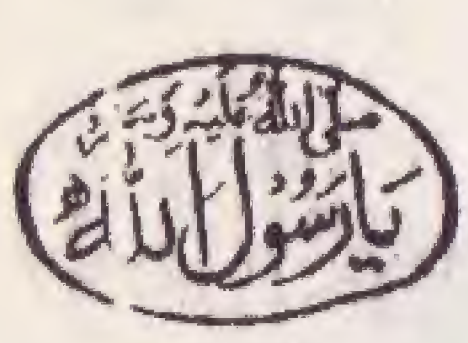 صلى الله عليه وسلم
يا رسول الله